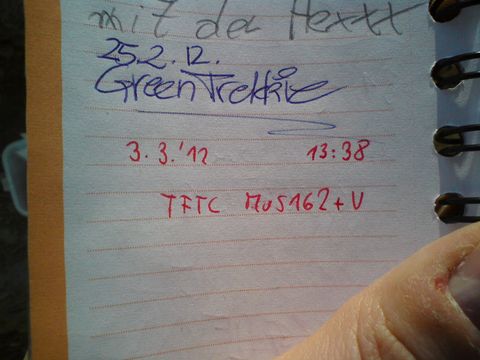 mit der Hexxx
25.2.12.
GreenTrekkie
3.3.'12 13:38
TFTC MuS162+V